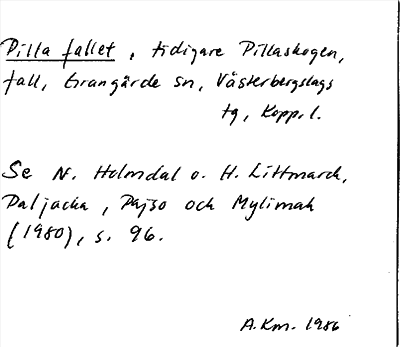 Pilla fallet, tidigare Pillaskogen,
fall, Grangärde sn, Västerbergslags
tg, Kopp.l.
Se N. Holmdal o. H. Littmarck,
Paljacka, Pajso och Mylimak
(1980), s. 96.
A.Km. 1986